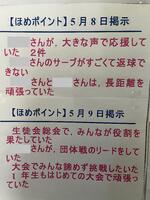 【ほめポイント】５月８日掲示
さんが、大きな声で応援して
いた　２件
さんのサーブがすごくて返球で
きない
さんと　さんは、長距離を
頑張っていた
【ほめポイント】５月９日掲示
生徒会総会で、みんなが役割を
果たしていた
さんが、団体戦のリードをして
いた
大会でみんな諦めず挑戦したいた
１年生もはじめての大会で頑張っ
ていた